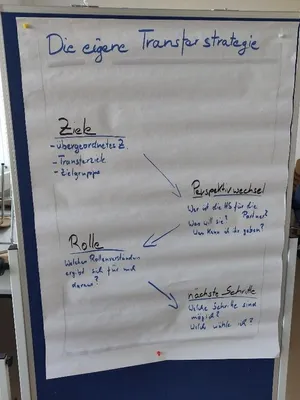 Die eigene Transferstrategie
Ziele
- übergeordnetes Z.
- Transferziele
- Zielgruppe
Perspektivwechsel
Wer ist die HS für die
Partner?
Was will sie?
Was kann ich ihr geben?
Rolle
Welches Rollenverständnis
ergibt sich für mich
daraus?
nächste Schritte
Welche Schritte sind
möglich?
Welche wähle ich?